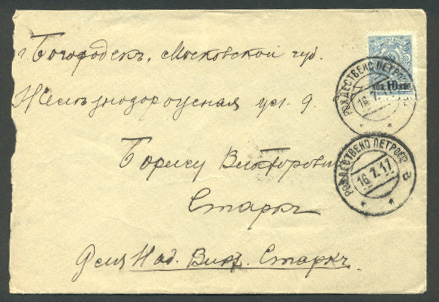 г. Богородскъ, Московской губ.
Железнодорожная ул. д.
Борису Викторовичу
Старкъ
Для Над. Викт. Старкъ.
коп. 10 коп.
РОЖДЕСТВЕНО ПЕТРОГР.
16.7.17
РОЖДЕСТВЕНО ПЕТРОГР. В
16.7.17